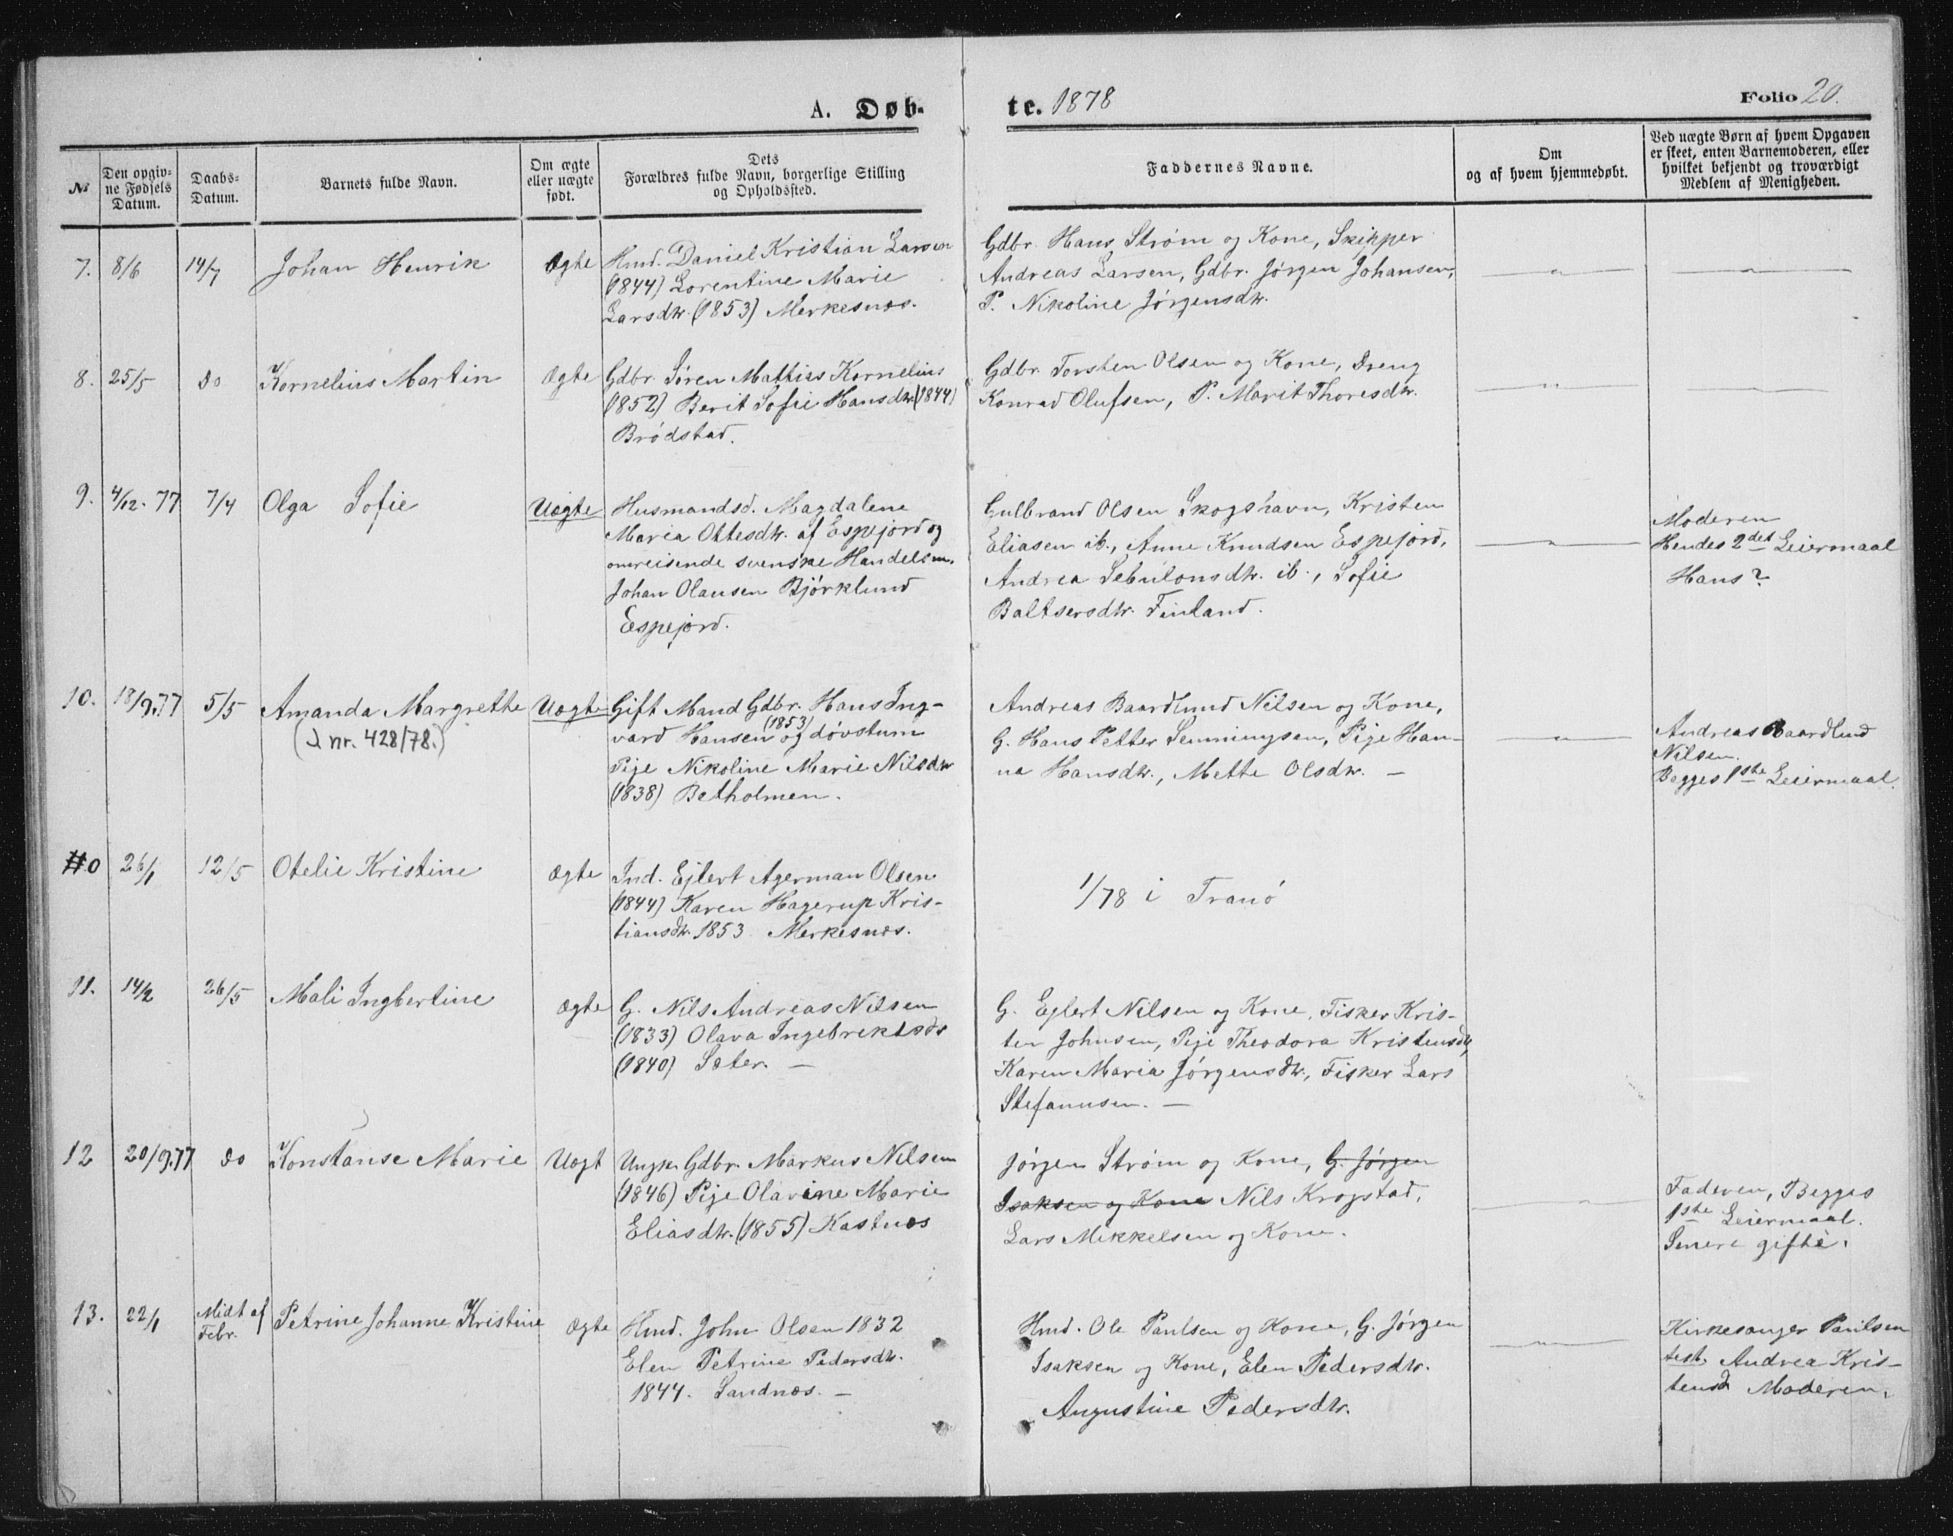 A. Døb-
te. 1878
Folio 20.
№
Den opgiv-
ne Fødsels
Datum.
Daabs-
Datum.
Barnets fulde Navn.
Om ægte
eller uægte
født.
Dets
Forældres fulde Navn, borgerlige Stilling
og Opholdssted.
Faddernes Navne.
Om
og af hvem hjemmedøbt.
Ved uægte Børn af hvem Opgaven
er skeet, enten Barnemoderen, eller
hvilket bekjendt og troværdigt
Medlem af Menigheden.
7. 8/6 14/7 Johan Henrik Ægte
Hmd. Daniel Kristian Larsen
(1844) Lorentine Marie
Larsdtr. (1853) Merkesnæs.
Gdbr. Hans Strøm og Kone, Skipper
Andreas Larsen, Gdbr. Jørgen Johansen,
P. Nikoline Jørgensdtr.
8. 25/5 do Kornelius Martin Ægte
Gdbr. Søren Mattias Kornelius
(1852) Berit Sofie Hansdtr. (1844)
Brødstad.
Gdbr. Torsten Olsen og Kone, Dreng
Konrad Olufsen, P. Marit Thoresdtr.
9. 4/12-77 7/4 Olga Sofie Uægte
Husmandsd. Magdalene
Maria Ottesdtr. af Espejord og
omreisende svenske Handelsm.
Johan Olausen Björklund
Espejord.
Gulbrand Olsen Skogshavn, Kristen
Eliasen ib., Anne Knudsen Espejord,
Andrea Sebulonsdtr. ib., Sofie
Baltsersdtr. Finland.
Moderen
Hendes 2det Leiermaal
Hans?
10. 18/9.77 5/5 Amanda Margrethe Uægte
(J. nr. 428/78.)
Gift Mand Gdbr. Hans Ing-
vard Hansen (1853) og døvstum
Pige Nikoline Marie Nilsdtr
(1838) Betholmen.
Andreas Baardlund Nilsen og Kone,
G. Hans Petter Senningsen, Pige Han-
na Hansdtr., Mette Olsdtr. —
Andreas Baardlund
Nilsen.
Begges 1ste Leiermaal.
#0 26/1 12/5 Otelie Kristine Ægte
Ind. Ejlert Agerman Olsen
(1844) Karen Hagerup Kris-
tiansdtr. 1853 Merkesnæs.
1/78 i Tranö
11. 14/2 26/5 Mali Ingbertine Ægte
G. Nils Andreas Nilsen
(1833) Olava Ingebrektsdr
(1840) Sæter. —
G. Ejlert Nilsen og Kone, Fisker Kris-
ten Johnsen, Pige Theodora Kristensdtr,
Karen Maria Jørgensdtr., Fisker Lars
Stefanusen. —
12 20/9.77 do Konstanse Marie Uægt
Ungk. Gdbr. Markus Nilsen
(1846) Pige Olavine Marie
Eliasdtr. (1855) Kastnæs
Jørgen Strøm og Kone, G. Jørgen
Isaksen og Kone Nils Krogstad,
Lars Mikkelsen og Kone.
Faderen, Begges
1ste Leiermaal.
Senere gifte.
13. 22/1 Midt af
Febr.
Petrine Johanne Kristine Ægte
Hmd. John Olsen 1832
Elen Petrine Pedersdtr.
1844. Sandnæs. —
Hmd. Ole Paulsen og Kone, G. Jørgen
Isaksen og Kone, Elen Pedersdtr.
Augustine Pedersdtr.
Kirkesanger Paulsen
test. Andrea Kris-
tensd Moderen.